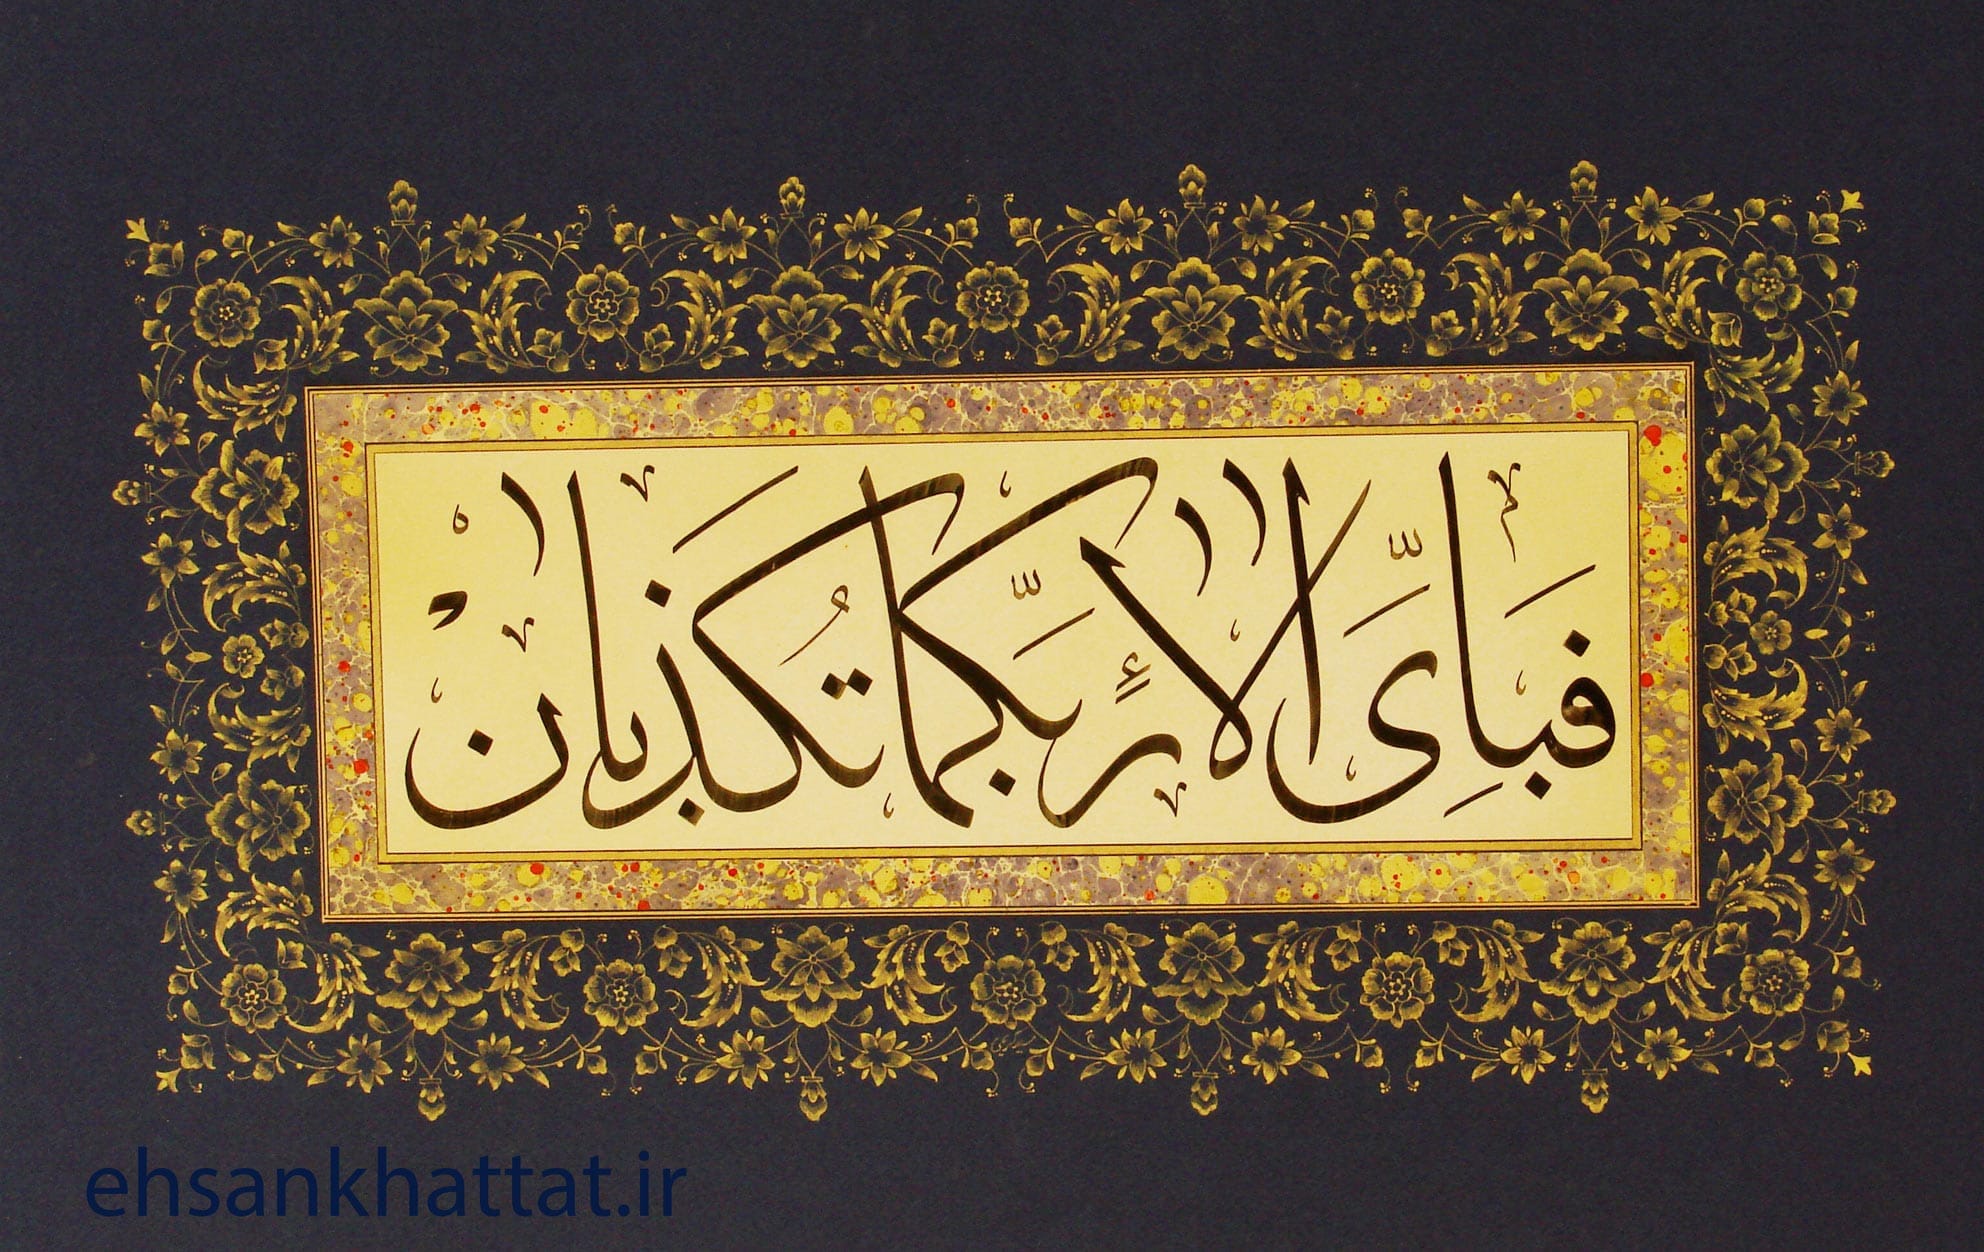 فَبِاَیِّ اٰلاءِ رَبِّکُمَا تُکَذِّبَانِ
ehsankhattat.ir